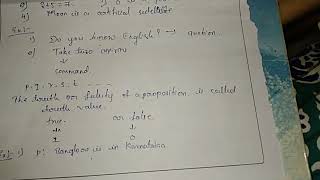 3) 2+5=7.
4) Moon is a satellite
Ex:-
i) Do you know English? → question.
o) Take two
↓
command.
p, q, r, s, t - - -
The truth or falsity of a proposition is called
truth value.
true or false
↓ ↓
1 0
Ex:- i) p: Bangalore is in Karnataka